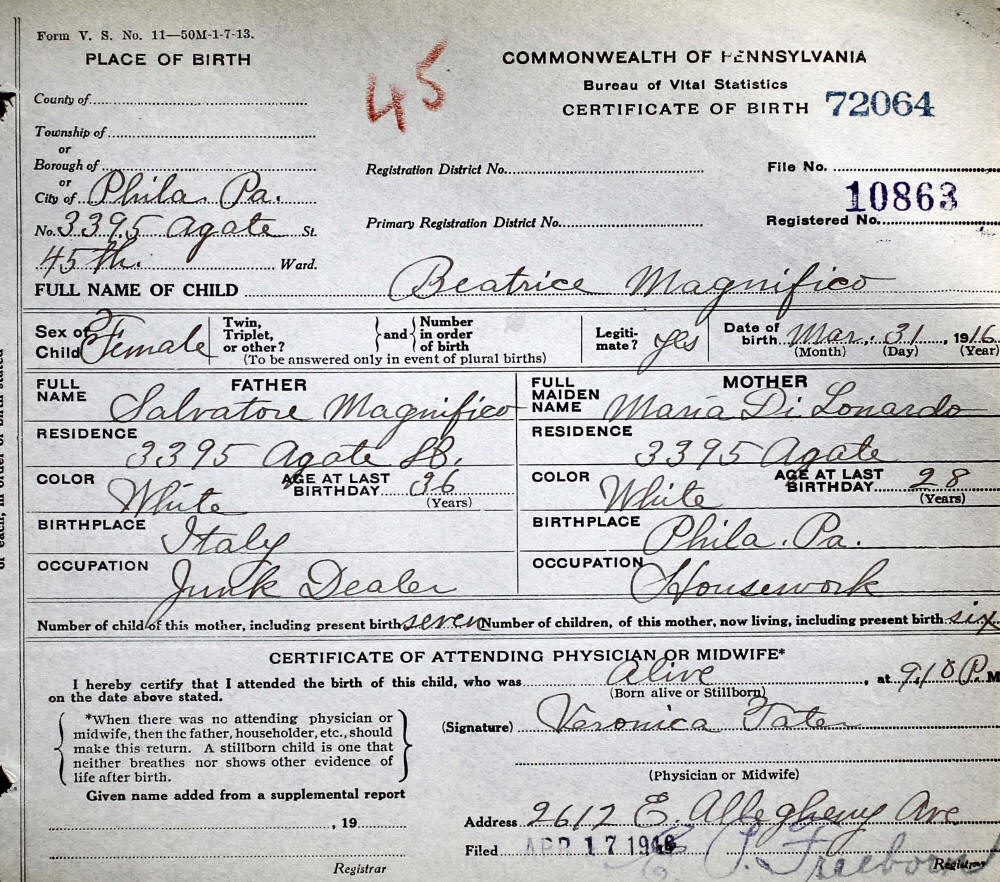 Form V. S. No. 11—50M-1-7-13.
PLACE OF BIRTH
County of
Township of
or
Borough of
or
City of Phila. Pa.
No. 3395 Agate St.
45th. Ward.
45
COMMONWEALTH OF PENNSYLVANIA
Bureau of Vital Statistics
CERTIFICATE OF BIRTH 72064
Registration District No.
File No.
10863
Primary Registration District No.
Registered No.
FULL NAME OF CHILD Beatrice Magnifico
Sex of Child Female
Twin, Triplet, or other? } and { Number in order of birth
(To be answered only in event of plural births)
Legiti-mate? yes
Date of birth Mar. 31, 1916
(Month) (Day) (Year)
FATHER
FULL NAME Salvatore Magnifico
RESIDENCE
3395 Agate St.
COLOR White AGE AT LAST BIRTHDAY 36
(Years)
BIRTHPLACE Italy
OCCUPATION Junk Dealer
MOTHER
FULL MAIDEN NAME Maria Di Lonardo
RESIDENCE
3395 Agate
COLOR White AGE AT LAST BIRTHDAY 28
(Years)
BIRTHPLACE Phila. Pa.
OCCUPATION Housework
Number of child of this mother, including present birth seven Number of children, of this mother, now living, including present birth six
CERTIFICATE OF ATTENDING PHYSICIAN OR MIDWIFE*
I hereby certify that I attended the birth of this child, who was Alive, at 9.10 P. M
on the date above stated.
(Born alive or Stillborn)
*When there was no attending physician or
midwife, then the father, householder, etc., should
make this return. A stillborn child is one that
neither breathes nor shows other evidence of
life after birth.
(Signature) Veronica Tater
(Physician or Midwife)
Given name added from a supplemental report
, 19
Registrar
Address 2612 E. Allegheny Ave
Filed APR 17 1916
Registrar
of each, in order of birth stated